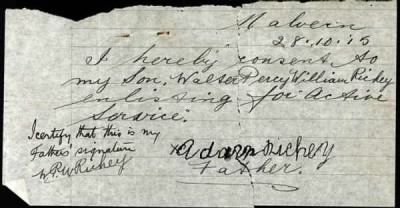 Malvern
28.10.15
I hereby consent to
my Son, Walter Percy William Richey
enlisting for Active
Service.
I certify that this is my
Fathers' signature
W.P.W Richey
x Adam Richey
Father.